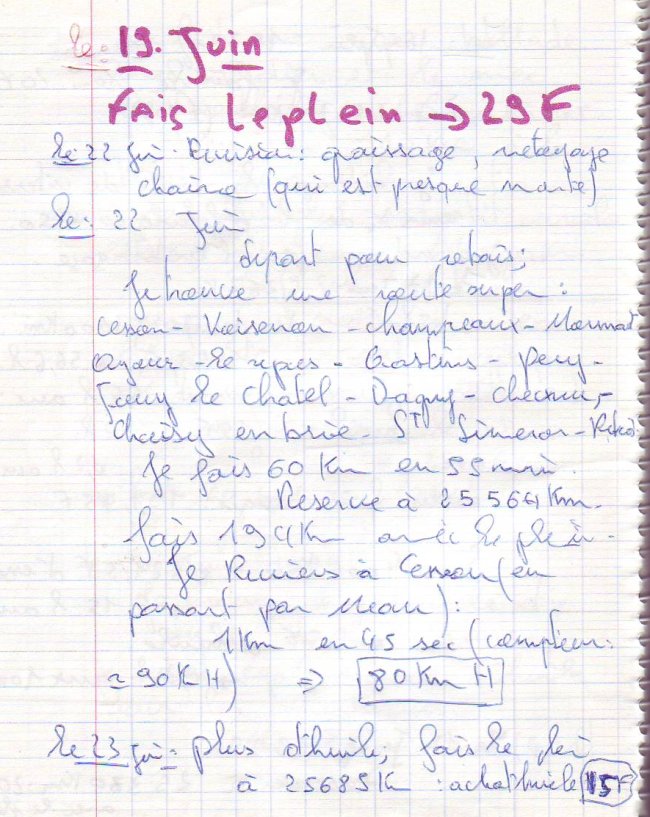 le: 19. Juin
FAIS le plein → 29F
le: 22 Jui. Revision: graissage, netoyage
chaine (qui est presque morte)
le: 22 Juin
depart pour rebais;
Je trouve une route super:
Cesson - Voisenon - champeaux - Mormant
le repas - Gastins - Pecy -
Jouy le Chatel - Dagny - chevru, -
Choisy en brie - ST Simeon - Rebais
Je fais 60 Km en 55 min.
Reserve à 25564 Km.
fais 194 Km avec le plein.
Je Reviens à Cesson (en
passant par Meaux):
1 Km en 45 sec (compteur:
≃ 90 K H) ⇒ 80 Km H
le 23 Jui = plus d'huile, fais le plein
à 25685 K : achat huile 15F